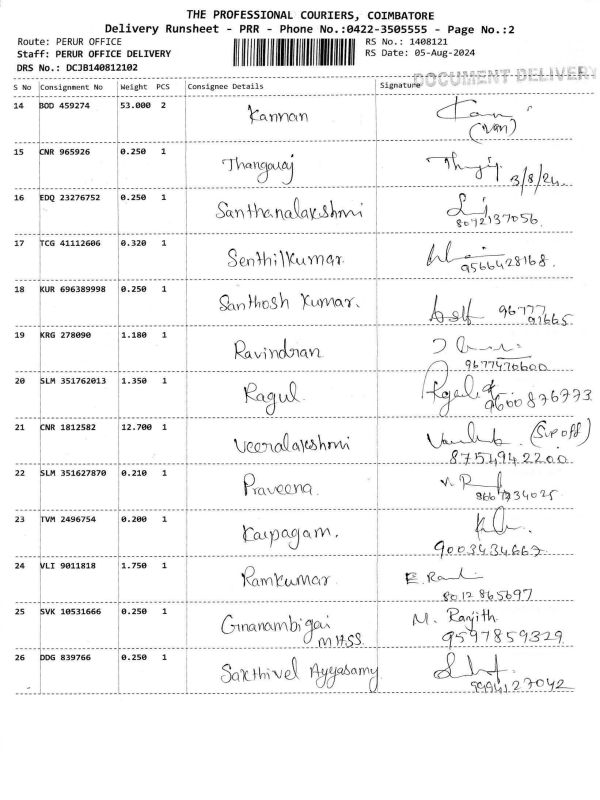 THE PROFESSIONAL COURIERS, COIMBATORE
Delivery Runsheet - PRR - Phone No.:0422-3505555 - Page No.:2
Route: PERUR OFFICE
RS No.: 1408121
Staff: PERUR OFFICE DELIVERY
RS Date: 05-Aug-2024
DRS No.: DCJB140812102
DOCUMENT DELIVERY
S No Consignment No Weight PCS Consignee Details Signature
14 BOD 459274 53.000 2 Kannan
15 CNR 965926 0.250 1 Thangaraj
3/8/24
16 EDQ 23276752 0.250 1 Santhanalakshmi
8072137056
17 TCG 41112606 0.320 1 Senthilkumar
9566428168
18 KUR 696389998 0.250 1 Santhosh Kumar. 96777
91665
19 KRG 278090 1.180 1 Ravindran
9677470600
20 SLM 351762013 1.350 1 Ragul
9600876773
21 CNR 1812582 12.700 1 Veeralakshmi
8754942200
22 SLM 351627870 0.210 1 Praveena
8667234025
23 TVM 2496754 0.200 1 Karpagam.
9003434667
24 VLI 9011818 1.750 1 Ramkumar
8012865697
25 SVK 10531666 0.250 1 Gnanambigai M. Ranjith
MHSS 9597859329
26 DDG 839766 0.250 1 Sakthivel Ayyasamy
9994127042